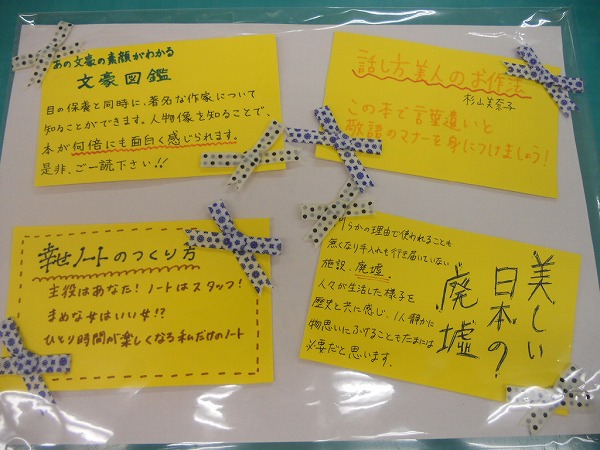 あの文豪の素顔がわかる
文豪図鑑
目の保養と同時に、著名な作家について
知ることができます。人物像を知ることで、
本が何倍にも面白く感じられます。
是非、ご一読下さい!!
話し方美人のお作法
杉山美奈子
この本で言葉遣いと
敬語のマナーを身につけましょう!
幸せノートのつくり方
主役はあなた!ノートはスタッフ!
まめな女はいい女!?
ひとり時間が楽しくなる私だけのノート
美しい
日本の
廃墟
らかの理由で使われることも
無くなり手入れも行き届いていない
施設、廃墟。
人々が生活した様子を
歴史と共に感じ、1人静かに
物思いにふけることもたまには
必要だと思います。